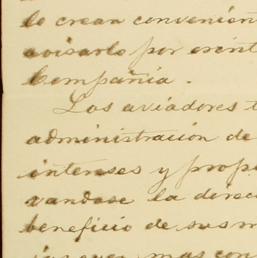 lo crean convenien
avisarlo por escrit
Compañia.
Los aviadores t
administración de
intereses y propi
vandose la direc
beneficio de sus m
juzguen mas con